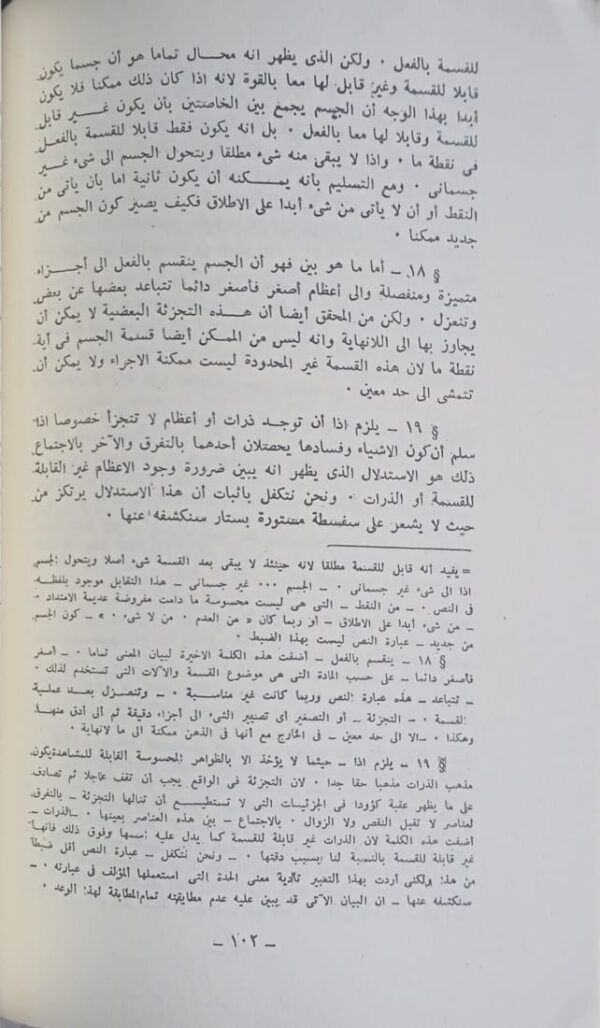 للقسمة بالفعل ٠ ولكن الذى يظهر انه محال تماما هو أن جسما يكون
قابلا للقسمة وغير قابل لها معا بالقوة لانه اذا كان ذلك ممكنا فلا يكون
أبدا بهذا الوجه أن الجسم يجمع بين الخاصتين بأن يكون غير قابل
للقسمة وقابلا لها معا بالفعل ٠ بل انه يكون فقط قابلا للقسمة بالفعل
فى نقطة ما ٠ واذا لا يبقى منه شىء مطلقا ويتحول الجسم الى شىء غير
جسمانى ٠ ومع التسليم بأنه يمكنه أن يكون ثانية اما بأن يأتى من
النقط أو أن لا يأتى من شىء أبدا على الاطلاق فكيف يصير كون الجسم من
جديد ممكنا ٠
§ ١٨ ـ أما ما هو بين فهو أن الجسم ينقسم بالفعل الى أجزاء
متميزة ومنفصلة والى أعظام أصغر فأصغر دائما تتباعد بعضها عن بعض
وتنعزل ٠ ولكن من المحقق أيضا أن هذه التجزئة البعضية لا يمكن أن
يجاوز بها الى اللانهاية وانه ليس من الممكن أيضا قسمة الجسم فى أية
نقطة ما لان هذه القسمة غير المحدودة ليست ممكنة الاجراء ولا يمكن أن
تتمشى الى حد معين ٠
§ ١٩ ـ يلزم اذا أن توجد ذرات أو أعظام لا تتجزأ خصوصا اذا
سلم أن كون الاشياء وفسادها يحصلان أحدهما بالتفرق والآخر بالاجتماع
ذلك هو الاستدلال الذى يظهر انه يبين ضرورة وجود الاعظام غير القابلة
للقسمة أو الذرات ٠ ونحن نتكفل باثبات أن هذا الاستدلال يرتكز من
حيث لا يشعر على سفسطة مستورة بستار سنكشفه عنها ٠
= يفيد أنه قابل للقسمة مطلقا لانه حينئذ لا يبقى بعد القسمة شىء أصلا ويتحول الجسم
اذا الى شىء غير جسمانى ٠ ـ الجسم ٠٠٠ غير جسمانى ـ هذا التقابل موجود بلفظه
فى النص ٠ ـ من النقط ـ التى هى ليست محسوسة ما دامت مفروضة عديمة الامتداد ٠
ـ من شىء أبدا على الاطلاق ـ أو ربما كان « من العدم ٠ من لا شىء ٠ » ـ كون الجسم
من جديد ـ عبارة النص ليست بهذا الضبط ٠
§ ١٨ ـ ينقسم بالفعل ـ أضفت هذه الكلمة الاخيرة لبيان المعنى تماما ٠ ـ أصغر
فأصغر دائما ـ على حسب المادة التى هى موضوع القسمة والآلات التى تستخدم لذلك ٠
ـ تتباعد ـ هذه عبارة النص وربما كانت غير مناسبة ٠ ـ وتنعزل بعد عملية
القسمة ٠ ـ التجزئة ـ أو التصغير أى تصيير الشىء الى أجزاء دقيقة ثم الى أدق منها
وهكذا ٠ ـ الا الى حد معين ـ فى الخارج مع أنها فى الذهن ممكنة الى ما لانهاية ٠
§ ١٩ ـ يلزم اذا ـ حيثما لا يؤخذ الا بالظواهر المحسوسة القابلة للمشاهدة يكون
مذهب الذرات مذهبا حقا جدا ٠ لان التجزئة فى الواقع يجب أن تقف عاجلا ثم تصادف
على ما يظهر عقبة كؤودا فى الجزئيات التى لا تستطيع أن تنالها التجزئة ـ بالتفرق
لعناصر لا تقبل النقص ولا الزوال ٠ بالاجتماع ـ بين هذه العناصر بعينها ٠ ـ الذرات ـ
أضفت هذه الكلمة لان الذرات غير قابلة للقسمة كما يدل عليه اسمها وفوق ذلك فانها
غير قابلة للقسمة بالنسبة لنا بسبب دقتها ٠ ـ ونحن نتكفل ـ عبارة النص أقل ضبطا
من هذا ولكنى أردت بهذا التعبير تأدية معنى الحدة التى استعملها المؤلف فى عبارته ٠ ـ
سنكشفه عنها ـ ان البيان الآتى قد يبين عليه عدم مطابقته تمام المطابقة لهذا الوعد ٠
ـ ١٠٢ ـ